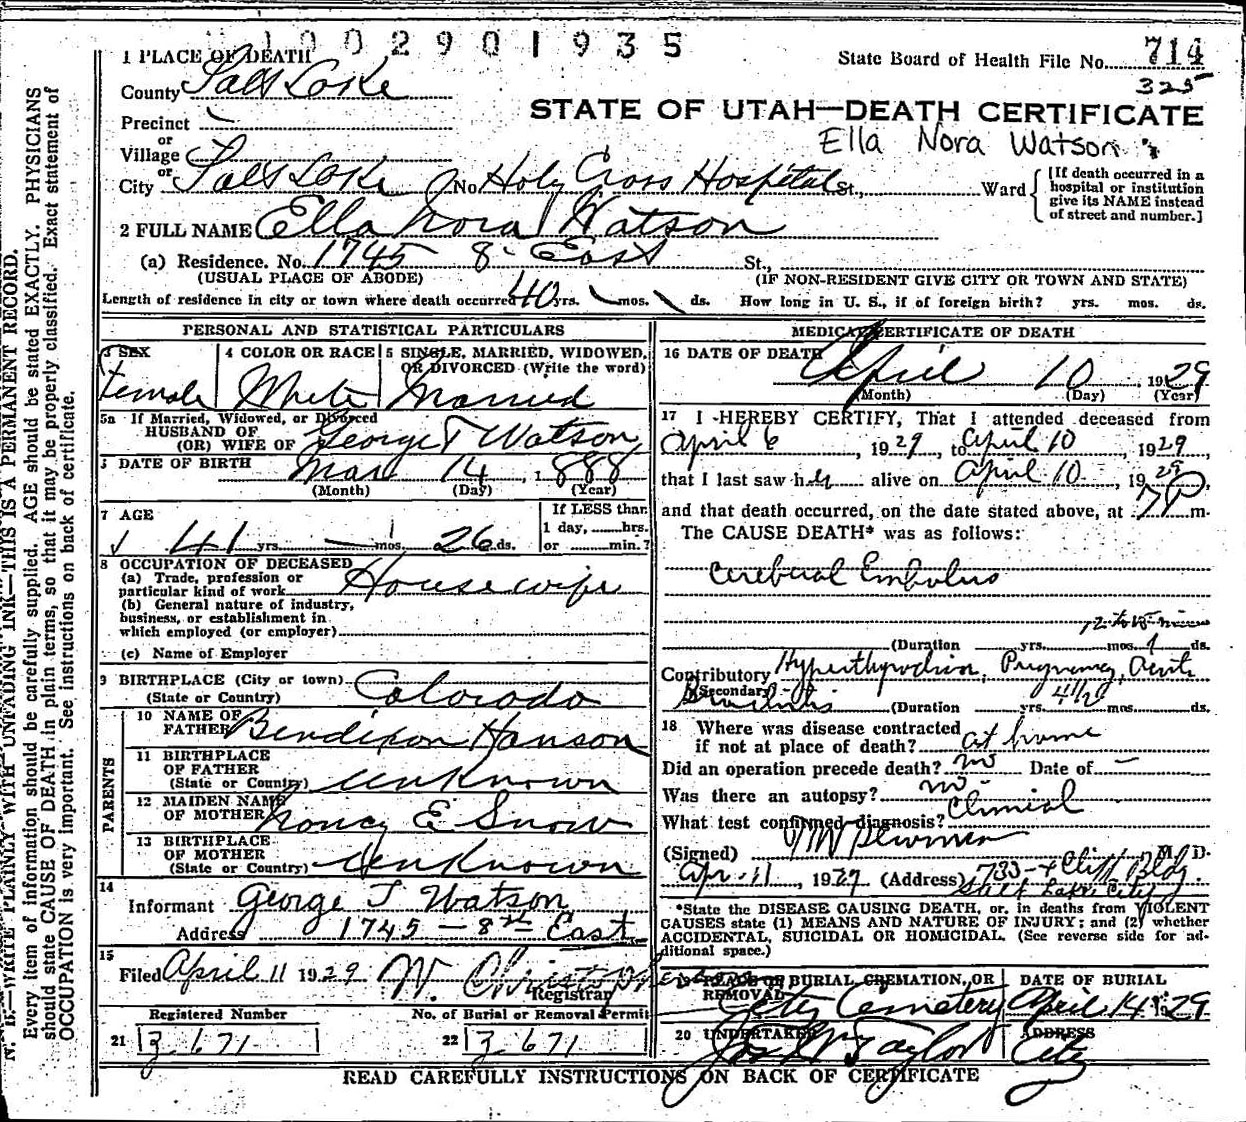 1002901935
1 PLACE OF DEATH
State Board of Health File No. 714
325
County Salt Lake
STATE OF UTAH—DEATH CERTIFICATE
Precinct
Ella Nora Watson
or
Village
or
City Salt Lake No. Holy Cross Hospital St., Ward
[If death occurred in a hospital or institution give its NAME instead of street and number.]
2 FULL NAME Ella Nora Watson
(a) Residence. No. 1745 8 East St.,
(USUAL PLACE OF ABODE) (IF NON-RESIDENT GIVE CITY OR TOWN AND STATE)
Length of residence in city or town where death occurred 40 yrs. mos. ds. How long in U. S., if of foreign birth? yrs. mos. ds.
PERSONAL AND STATISTICAL PARTICULARS
3 SEX 4 COLOR OR RACE 5 SINGLE, MARRIED, WIDOWED,
OR DIVORCED (Write the word)
Female White Married
5a If Married, Widowed, or Divorced
HUSBAND OF
(OR) WIFE OF George T Watson
DATE OF BIRTH Mar 14, 1888
(Month) (Day) (Year)
7 AGE If LESS than
1 day, hrs.
41 yrs. mos. 26 ds. or min.?
8 OCCUPATION OF DECEASED
(a) Trade, profession or
particular kind of work Housewife
(b) General nature of industry,
business, or establishment in
which employed (or employer)
(c) Name of Employer
9 BIRTHPLACE (City or town) Colorado
(State or Country)
PARENTS
10 NAME OF
FATHER Bendixon Hanson
11 BIRTHPLACE
OF FATHER
(State or Country) unknown
12 MAIDEN NAME
OF MOTHER Nancy E Snow
13 BIRTHPLACE
OF MOTHER
(State or Country) Unknown
14
Informant George T Watson
Address 1745 — 8th East
15
Filed April 11 1929 W. Christopherson
Registrar
Registered Number No. of Burial or Removal Permit
21 3671 22 3671
MEDICAL CERTIFICATE OF DEATH
16 DATE OF DEATH
April 10, 1929
(Month) (Day) (Year)
17 I HEREBY CERTIFY, That I attended deceased from
April 6, 1929, to April 10, 1929,
that I last saw her alive on April 10, 1929,
and that death occurred, on the date stated above, at 7 P m.
The CAUSE DEATH* was as follows:
Cerebral Embolus
(Duration yrs. mos. ds.
Contributory Hyperthyroidism, Pregnancy, Acute
(Secondary) Bronchitis
(Duration yrs. 4½ mos. ds.
18 Where was disease contracted
if not at place of death? at home
Did an operation precede death? no Date of —
Was there an autopsy? no
What test confirmed diagnosis? Clinical
(Signed) M. D.
Apr. 11, 1929 (Address) Cliff Bldg.
Salt Lake City
*State the DISEASE CAUSING DEATH, or, in deaths from VIOLENT
CAUSES state (1) MEANS AND NATURE OF INJURY; and (2) whether
ACCIDENTAL, SUICIDAL OR HOMICIDAL. (See reverse side for ad-
ditional space.)
19 PLACE OF BURIAL, CREMATION, OR REMOVAL DATE OF BURIAL
City Cemetery April 14 1929
20 UNDERTAKER ADDRESS
Taylor City
READ CAREFULLY INSTRUCTIONS ON BACK OF CERTIFICATE
N. B.—WRITE PLAINLY WITH UNFADING INK—THIS IS A PERMANENT RECORD.
Every item of information should be carefully supplied. AGE should be stated EXACTLY. PHYSICIANS
should state CAUSE OF DEATH in plain terms, so that it may be properly classified. Exact statement of
OCCUPATION is very important. See instructions on back of certificate.